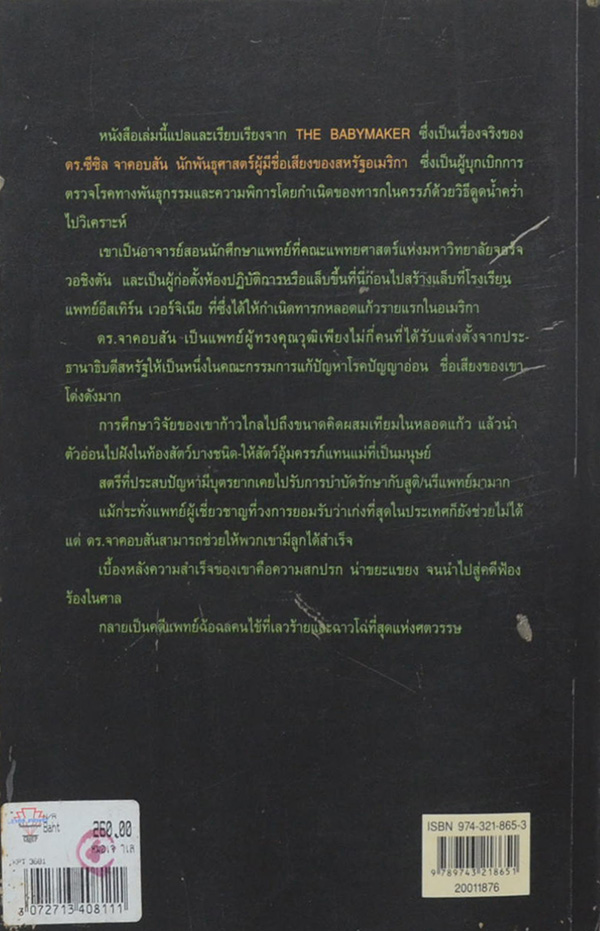 หนังสือเล่มนี้แปลและเรียบเรียงจาก THE BABYMAKER ซึ่งเป็นเรื่องจริงของ
ดร.ซีซิล จาคอบสัน นักพันธุศาสตร์ผู้มีชื่อเสียงของสหรัฐอเมริกา ซึ่งเป็นผู้บุกเบิกการ
ตรวจโรคทางพันธุกรรมและความพิการโดยกำเนิดของทารกในครรภ์ด้วยวิธีดูดน้ำคร่ำ
ไปวิเคราะห์
เขาเป็นอาจารย์สอนนักศึกษาแพทย์ที่คณะแพทยศาสตร์แห่งมหาวิทยาลัยจอร์จ
วอชิงตัน และเป็นผู้ก่อตั้งห้องปฏิบัติการหรือแล็บขึ้นที่นี่ก่อนไปสร้างแล็บที่โรงเรียน
แพทย์อีสเทิร์น เวอร์จิเนีย ที่ซึ่งได้ให้กำเนิดทารกหลอดแก้วรายแรกในอเมริกา
ดร.จาคอบสัน เป็นแพทย์ผู้ทรงคุณวุฒิเพียงไม่กี่คนที่ได้รับแต่งตั้งจากประ-
ธานาธิบดีสหรัฐให้เป็นหนึ่งในคณะกรรมการแก้ปัญหาโรคปัญญาอ่อน ชื่อเสียงของเขา
โด่งดังมาก
การศึกษาวิจัยของเขาก้าวไกลไปถึงขนาดคิดผสมเทียมในหลอดแก้ว แล้วนำ
ตัวอ่อนไปฝังในท้องสัตว์บางชนิด-ให้สัตว์อุ้มครรภ์แทนแม่ที่เป็นมนุษย์
สตรีที่ประสบปัญหามีบุตรยากเคยไปรับการบำบัดรักษากับสูติ/นรีแพทย์มามาก
แม้กระทั่งแพทย์ผู้เชี่ยวชาญที่วงการยอมรับว่าเก่งที่สุดในประเทศก็ยังช่วยไม่ได้
แต่ ดร.จาคอบสันสามารถช่วยให้พวกเขามีลูกได้สำเร็จ
เบื้องหลังความสำเร็จของเขาคือความสกปรก น่าขยะแขยง จนนำไปสู่คดีฟ้อง
ร้องในศาล
กลายเป็นคดีแพทย์ฉ้อฉลคนไข้ที่เลวร้ายและฉาวโฉ่ที่สุดแห่งศตวรรษ
N/A
Baht 260.00
3 072713 408111
ISBN 974-321-865-3
9 789743 218651
20011876